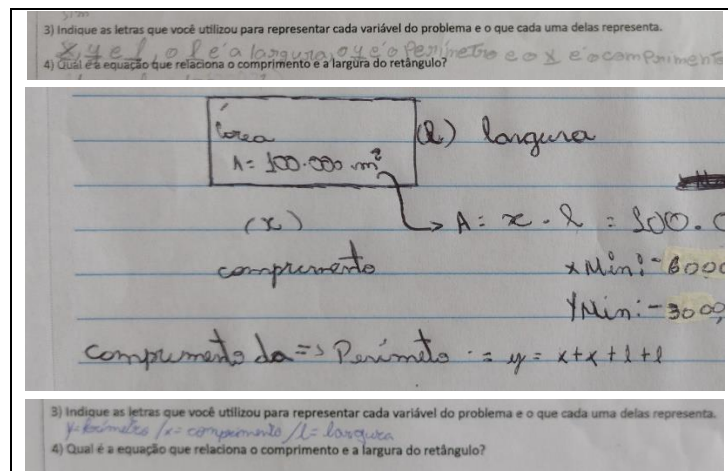 sim
3) Indique as letras que você utilizou para representar cada variável do problema e o que cada uma delas representa.
x, y e l, o l é a largura, o y é o Perímetro e o x é o comprimento
4) Qual é a equação que relaciona o comprimento e a largura do retângulo?
Área
(l) largura
A = 100.000 m²
(x)
A = x . l = 100.0
comprimento
x Min: -6000
Y Min: -3000
comprimento da => Perímetro = y = x+x+l+l
3) Indique as letras que você utilizou para representar cada variável do problema e o que cada uma delas representa.
y = Perímetro / x = comprimento / l = largura
4) Qual é a equação que relaciona o comprimento e a largura do retângulo?